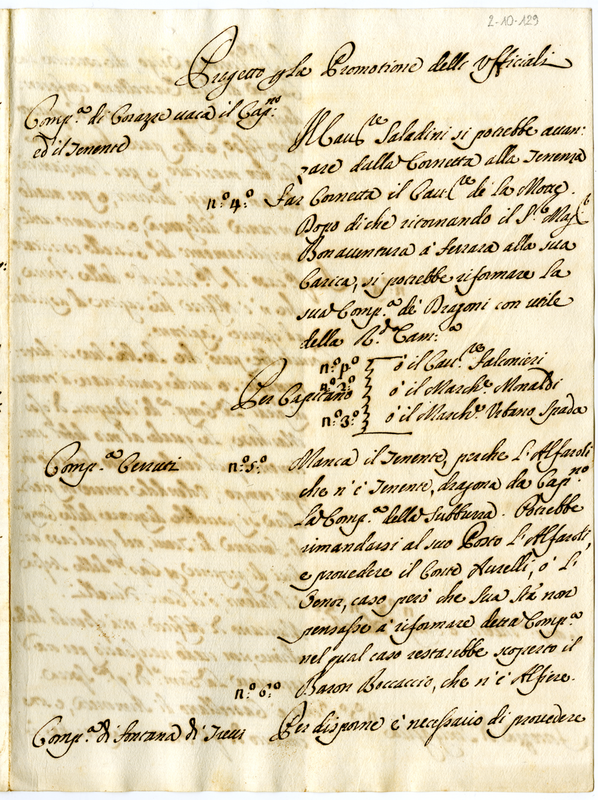 2-10-129
Progetto p la Promotione delli Ufficiali
Comp.ª di Corazze vaca il Cap.no
ed il Tenente
Saladini si potrebbe avan:
zare dalla Cornetta alla Tenenza
n.º 4.º Far Cornetta il Cau.re de la Motte.
Dopo di che ritornando il S.r
Bonaventura á ferrara alla sua
Carica, si potrebbe riformare la
sua Comp.ª de Dragoni con utile
della R.ª Cam.ª
n.º p.º ó il Cau.re Falconieri
Per Capitano n.º 2.º ó il March.e Monaldi
n.º 3.º ó il March.e Urbano Spada
Comp.ª Cerruti n.º 5.º Manca il Tenente, perche l'Alfaroli
che n'é Tenente, da Cap.no
la Comp.ª della Subburra. Potrebbe
rimandarsi al suo Posto l'Alfaroli,
e provedere il Conte Aurelli, ó l'
Benor, caso peró che Sua S.tà non
pensasse á riformare detta Comp.ª
nel qual caso restarebbe scoperto il
n.º 6.º Baron Boccaccio, che n'é Alfiere.
Comp.ª di Per disporne é necessario di provedere